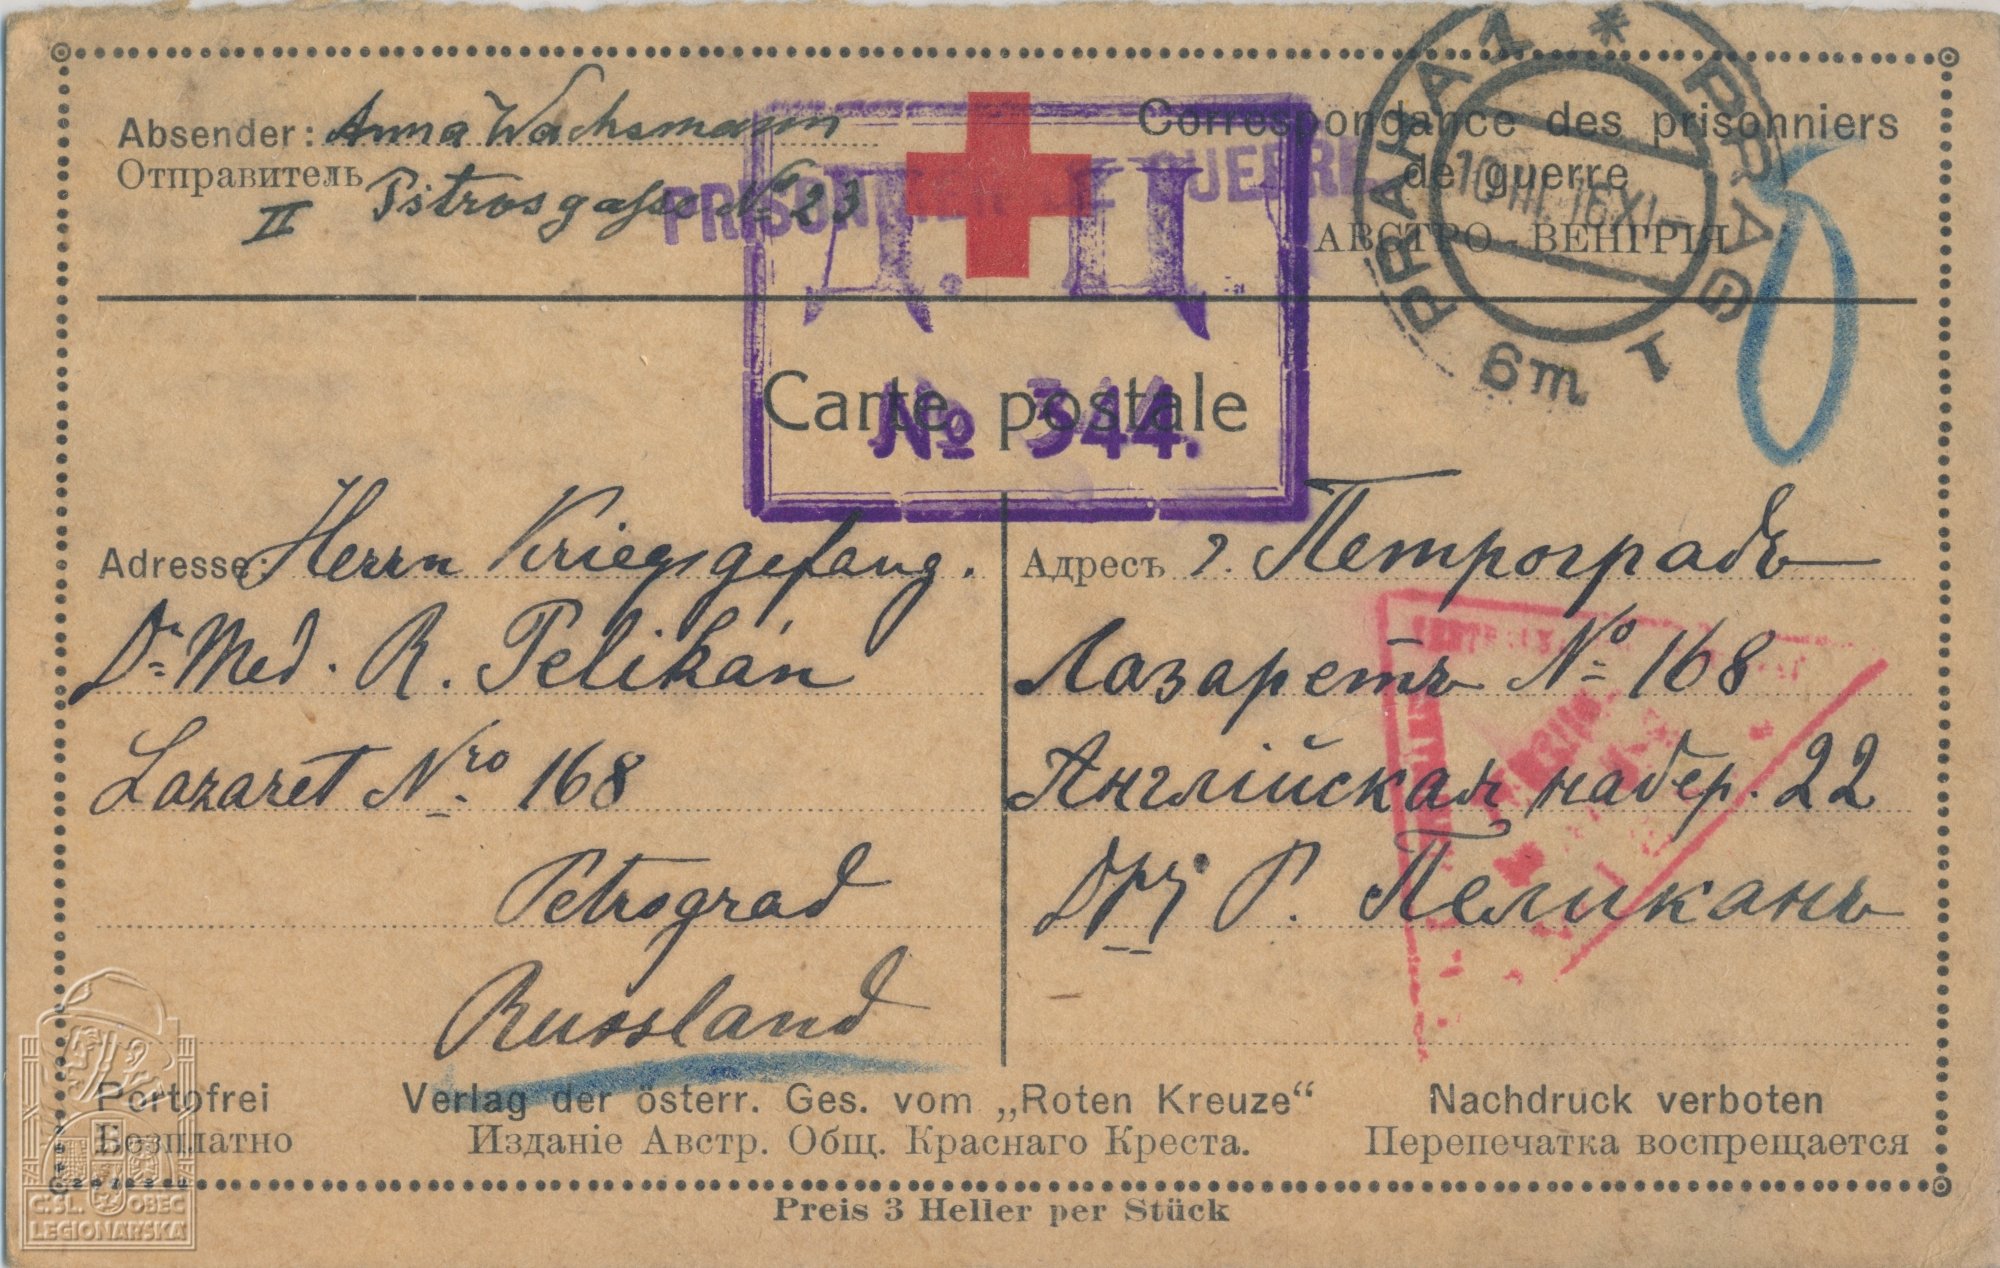 Absender: Anna Wachsmann
Отправитель
II Pštrosgasse No 23
Correspondance des prisonniers
de guerre
АВСТРО-ВЕНГРІЯ
PRISONNIER DE GUERRE
PRAHA 1 * PRAG 1
10.III.16.XI-
6m
Д. П
No 344.
Carte postale
Adresse: Herrn Kriegsgefang.
Dr Med. R. Pelikán
Lazaret Nro 168
Petrograd
Russland
Адресъ г. Петроградъ
Лазаретъ No 168
Англійская набер. 22
Р. Пеликанъ
Portofrei
Безплатно
Verlag der österr. Ges. vom „Roten Kreuze“
Изданіе Австр. Общ. Краснаго Креста.
Nachdruck verboten
Перепечатка воспрещается
Preis 3 Heller per Stück
Č.SL. OBEC
LEGIONÁŘSKÁ